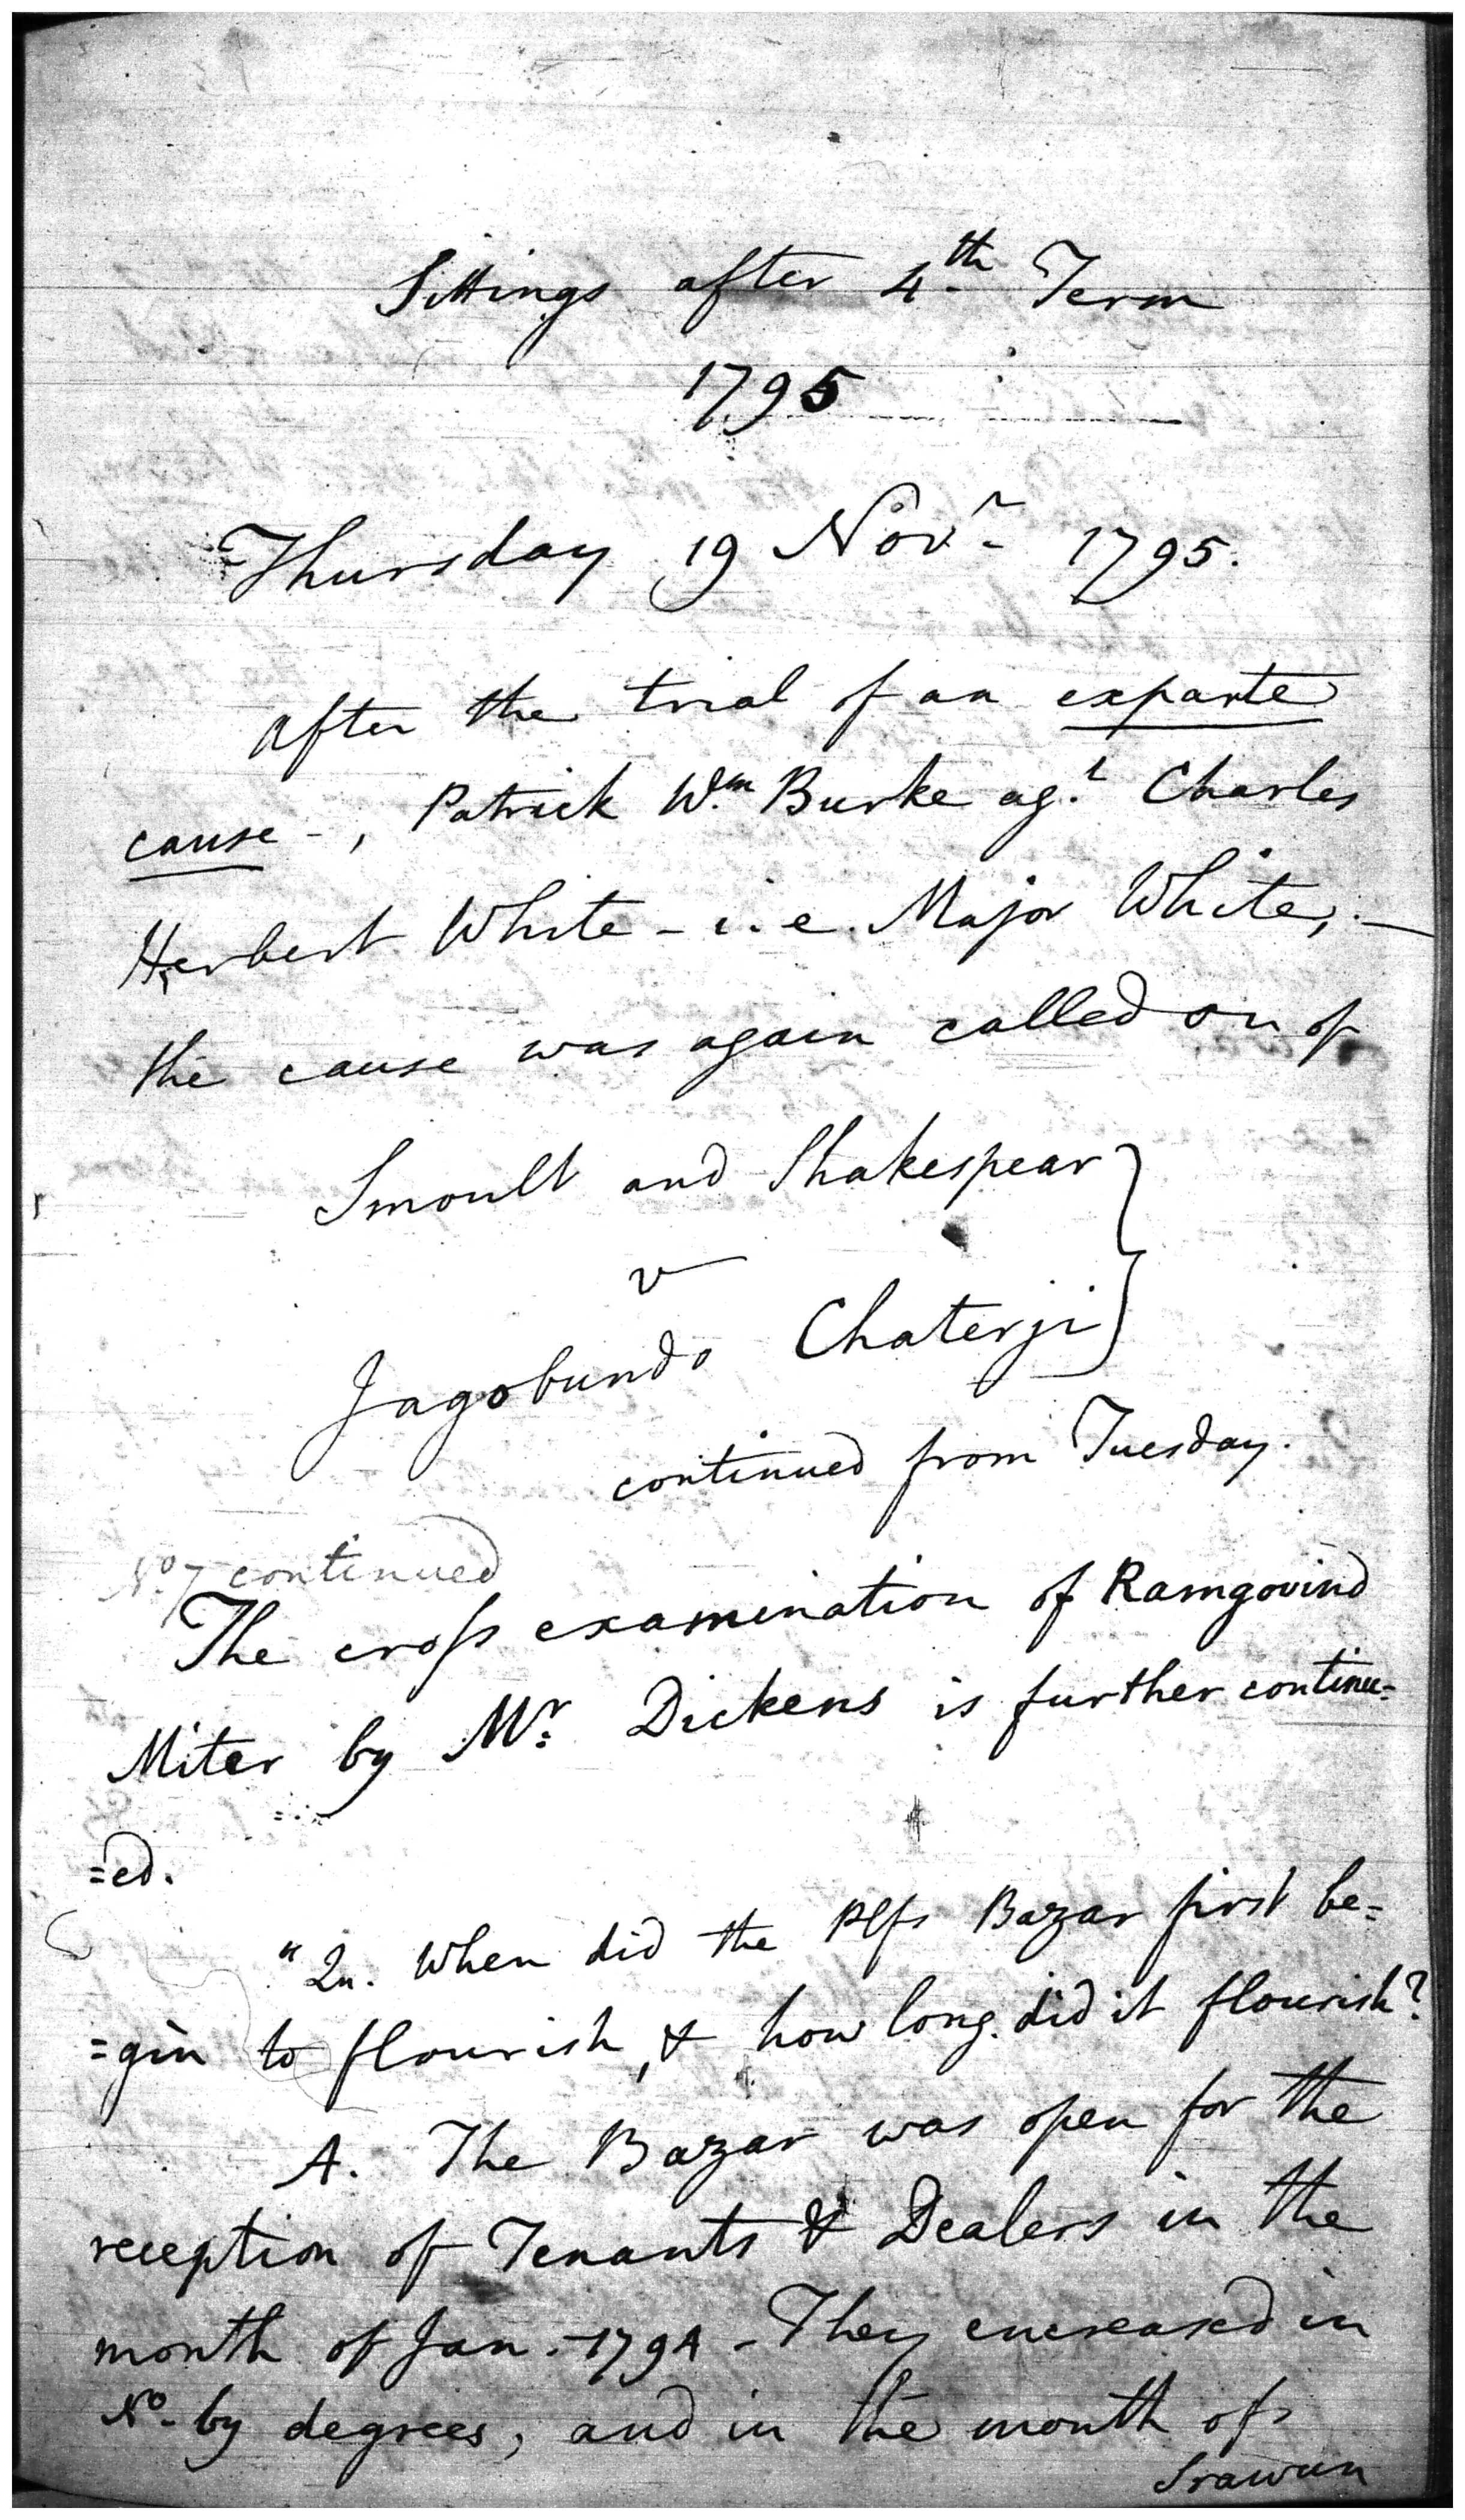 Sittings after 4th Term
1795
Thursday 19 Novr 1795.
After the trial of an exparte
cause -, Patrick Wm Burke agt Charles
Herbert White - i.e. Major White, -
the cause was again called on of
Smoult and Shakespear
v
Jagobundo Chaterji
continued from Tuesday.
No 7 continued
The cross examination of Ramgovind
Miter by Mr Dickens is further continu=
=ed.
"Qu. When did the Plfs Bazar first be=
=gin to flourish, & how long did it flourish?
A. The Bazar was open for the
reception of Tenants & Dealers in the
month of Jan. 1794 - They encreased in
No. by degrees, and in the month of
Srawun